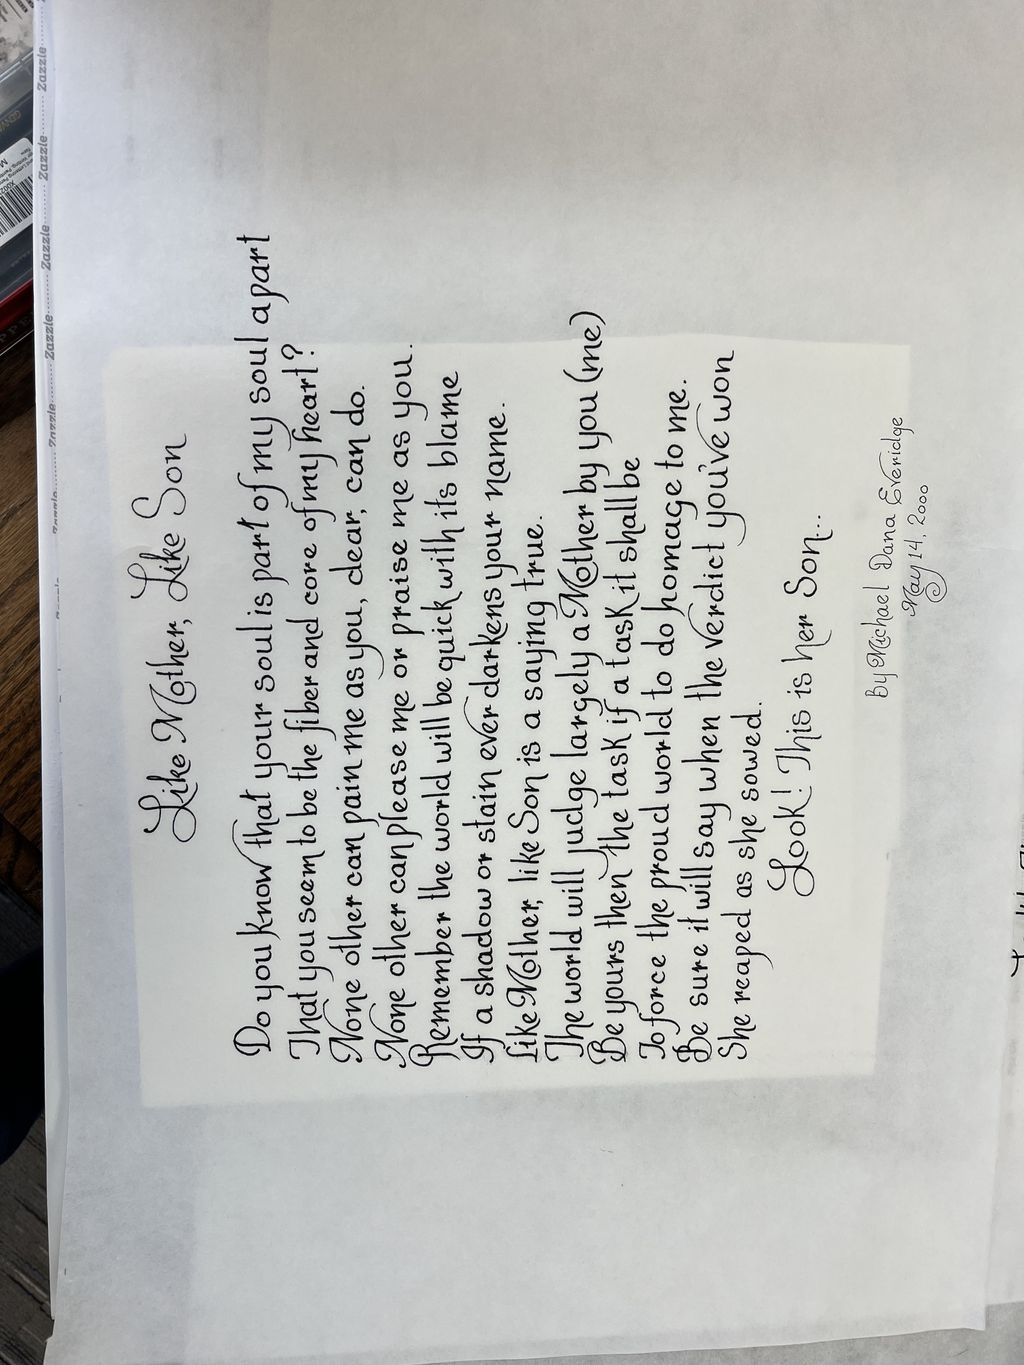 Like Mother, Like Son
Do you know that your soul is part of my soul apart
That you seem to be the fiber and core of my heart?
None other can pain me as you, dear, can do.
None other can please me or praise me as you.
Remember the world will be quick with its blame
If a shadow or stain ever darkens your name.
Like Mother, like Son is a saying true.
The world will judge largely a Mother by you (me)
Be yours then the task if a task it shall be
To force the proud world to do homage to me.
Be sure it will say when the verdict you've won
She reaped as she sowed.
Look! This is her Son...
By Michael Dana Everidge
May 14, 2000
Zazzle
Zazzle
Zazzle
Zazzle
Zazzle
Zazzle